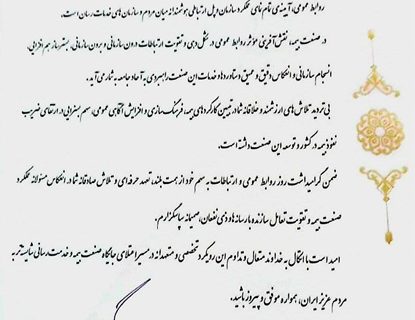 روابط عمومی، آیینه‌ی تمام نمای عملکرد سازمان و پل ارتباطی هوشمندانه میان مردم و سازمان های خدمات رسان است.
در صنعت بیمه، نقش آفرینی مؤثر روابط عمومی در شکل دهی و تقویت ارتباطات درون سازمانی و برون سازمانی، بستر ساز هم افزایی،
انسجام سازمانی و انعکاس دقیق و عمیق دستاوردها و خدمات این صنعت راهبردی به آحاد جامعه به شمار می آید.
بی تردید تلاش های ارزشمند و خلاقانه شما، در تبیین کارکردهای بیمه، فرهنگ سازی و افزایش آگاهی عمومی، سهم بسزایی در ارتقای ضریب
نفوذ بیمه در کشور و توسعه این صنعت داشته است.
ضمن گرامیداشت روز روابط عمومی و ارتباطات به سهم خود از همت بلند، تعهد حرفه ای و تلاش صادقانه شما در انعکاس مسئولانه عملکرد
صنعت بیمه و تقویت تعامل سازنده با رسانه ها و ذی نفعان، صمیمانه سپاسگزارم.
امید است با اتکال به خداوند متعال و تداوم این رویکرد تخصصی و متعهدانه در مسیر اعتلای جایگاه صنعت بیمه و خدمت رسانی شایسته تر به
مردم عزیز ایران، همواره موفق و پیروز باشید.